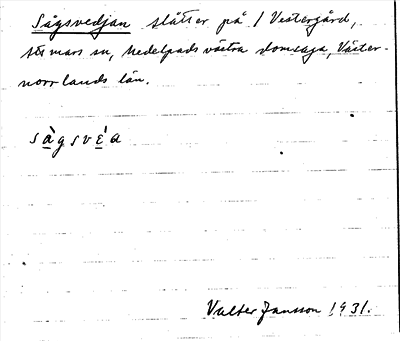 Sågsvedjan slåtter på 1 Vestergård,
Stermars sn, Medelpads västra domsaga, Väster-
norrlands län.
sågsvεa
Valter Jansson 1931.